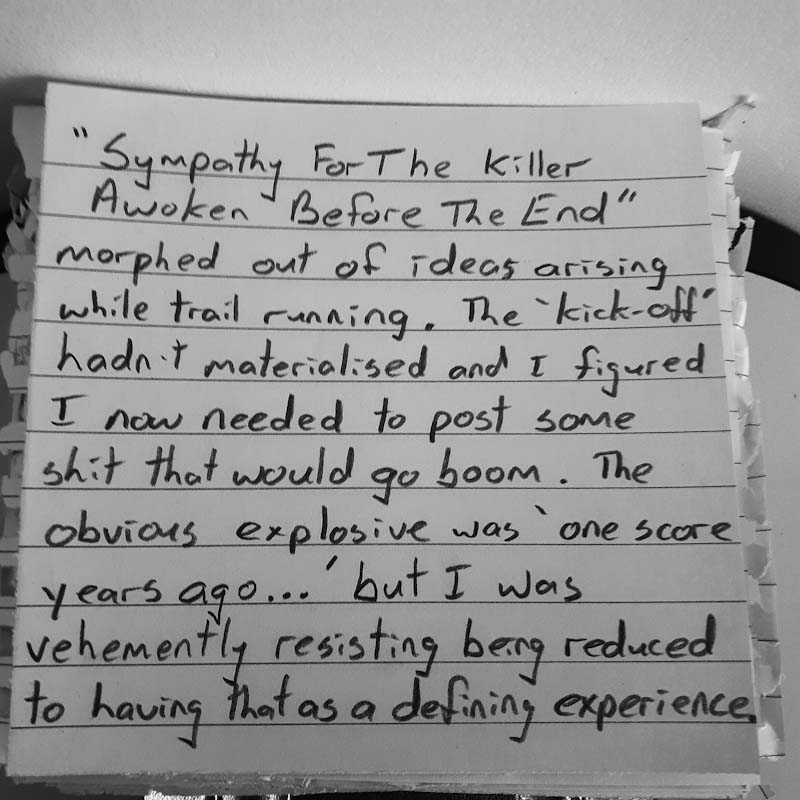 "Sympathy For The Killer
Awoken Before The End"
morphed out of ideas arising
while trail running. The 'kick-off'
hadn't materialised and I figured
I now needed to post some
shit that would go boom. The
obvious explosive was 'one score
years ago...' but I was
vehemently resisting being reduced
to having that as a defining experience.